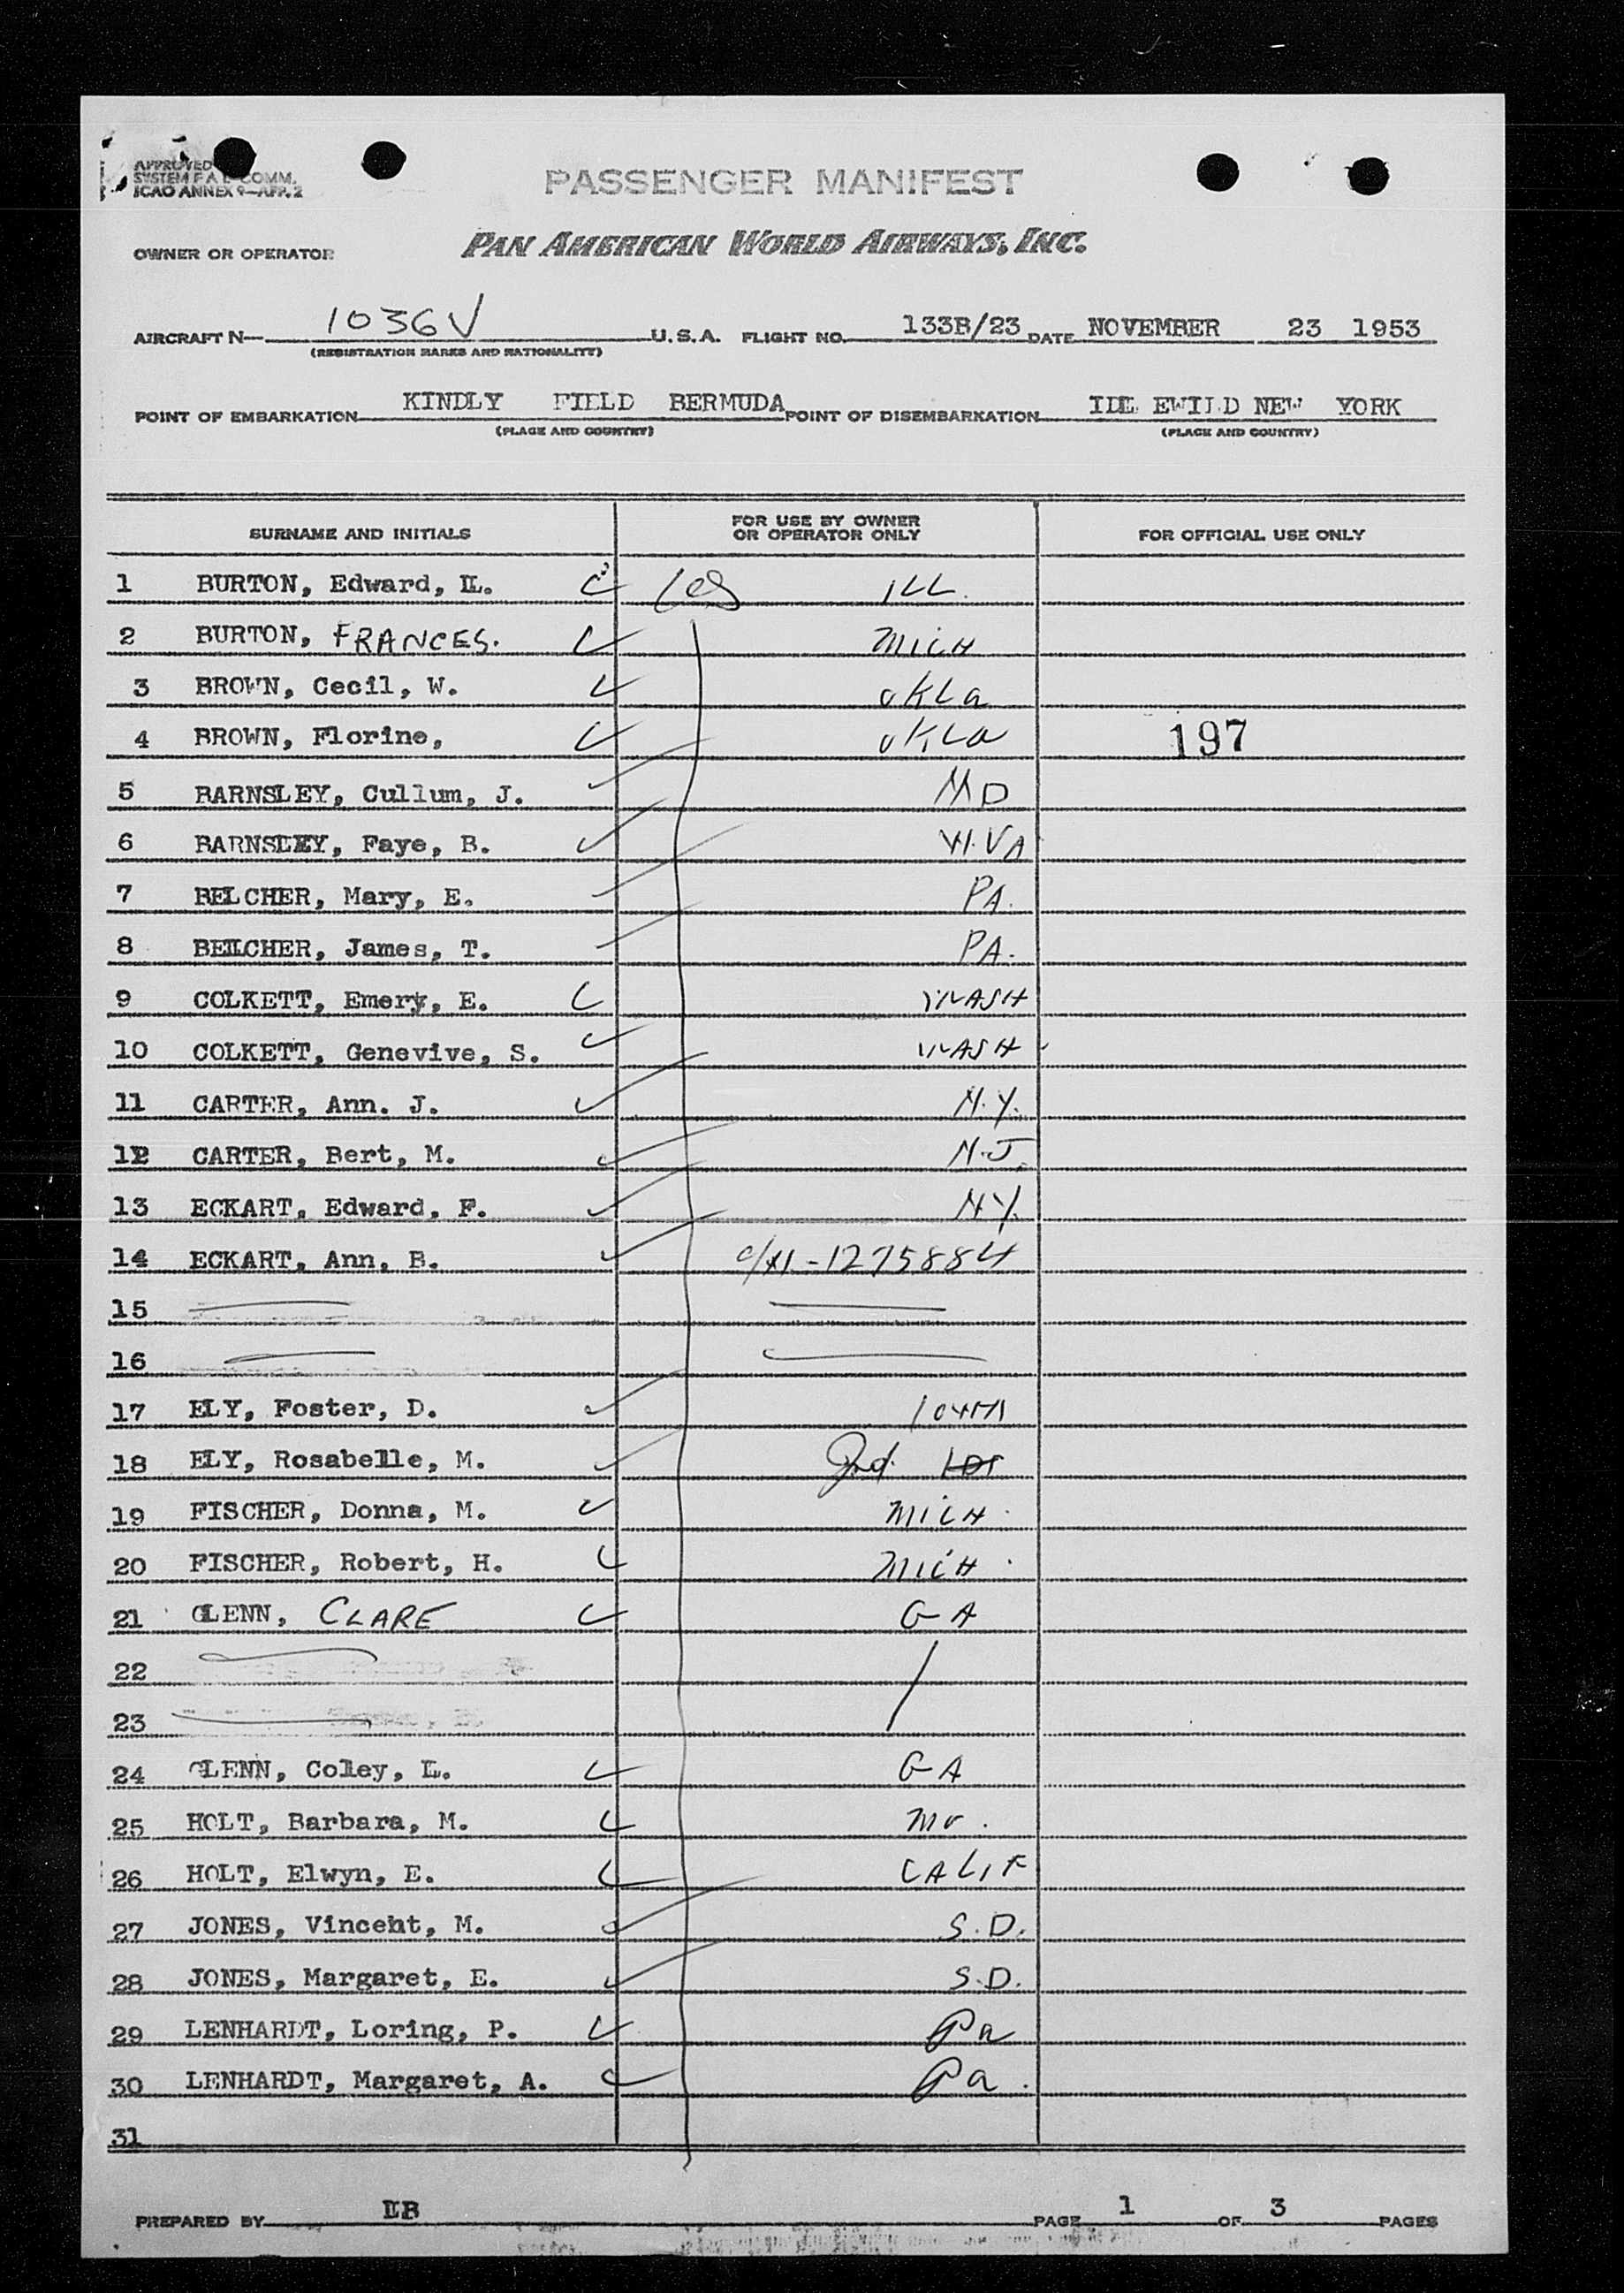 APPROVED
SYSTEM F A L COMM.
ICAO ANNEX 9—APP. 2
PASSENGER MANIFEST
OWNER OR OPERATOR PAN AMERICAN WORLD AIRWAYS, INC.
AIRCRAFT N— 1036V U.S.A. FLIGHT NO. 133B/23 DATE NOVEMBER 23 1953
(REGISTRATION MARKS AND NATIONALITY)
POINT OF EMBARKATION KINDLY FIELD BERMUDA POINT OF DISEMBARKATION IDL EWILD NEW YORK
(PLACE AND COUNTRY) (PLACE AND COUNTRY)
SURNAME AND INITIALS FOR USE BY OWNER OR OPERATOR ONLY FOR OFFICIAL USE ONLY
1 BURTON, Edward, L. ILL.
2 BURTON, FRANCES. MICH
3 BROWN, Cecil, W. OKLA
4 BROWN, Florine, OKLA 197
5 BARNSLEY, Cullum, J. MD
6 BARNSLEY, Faye, B. W.VA
7 BELCHER, Mary, E. PA.
8 BELCHER, James, T. PA.
9 COLKETT, Emery, E. WASH
10 COLKETT, Genevive, S. WASH
11 CARTER, Ann. J. N.Y.
12 CARTER, Bert, M. N.J.
13 ECKART, Edward, F. NY.
14 ECKART, Ann, B. C/N-1275884
15
16
17 ELY, Foster, D. IOWA
18 ELY, Rosabelle, M. Ind.
19 FISCHER, Donna, M. MICH.
20 FISCHER, Robert, H. MICH.
21 GLENN, CLARE GA
22
23
24 GLENN, Coley, L. GA
25 HOLT, Barbara, M. MO.
26 HOLT, Elwyn, E. CALIF
27 JONES, Vinceht, M. S.D.
28 JONES, Margaret, E. S.D.
29 LENHARDT, Loring, P. Pa
30 LENHARDT, Margaret, A. Pa.
31
PREPARED BY LB PAGE 1 OF 3 PAGES